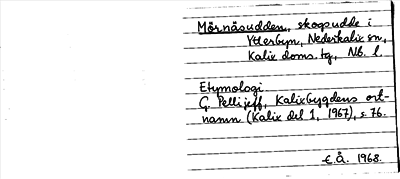 Mörnäsudden, skogsudde i
Ytterbyn, Nederkalix sn,
Kalix doms. tg, Nb. l.
Etymologi.
G. Pellijeff, Kalixbygdens ort-
namn (Kalix del 1, 1967), s. 76.
E. Å. 1968.